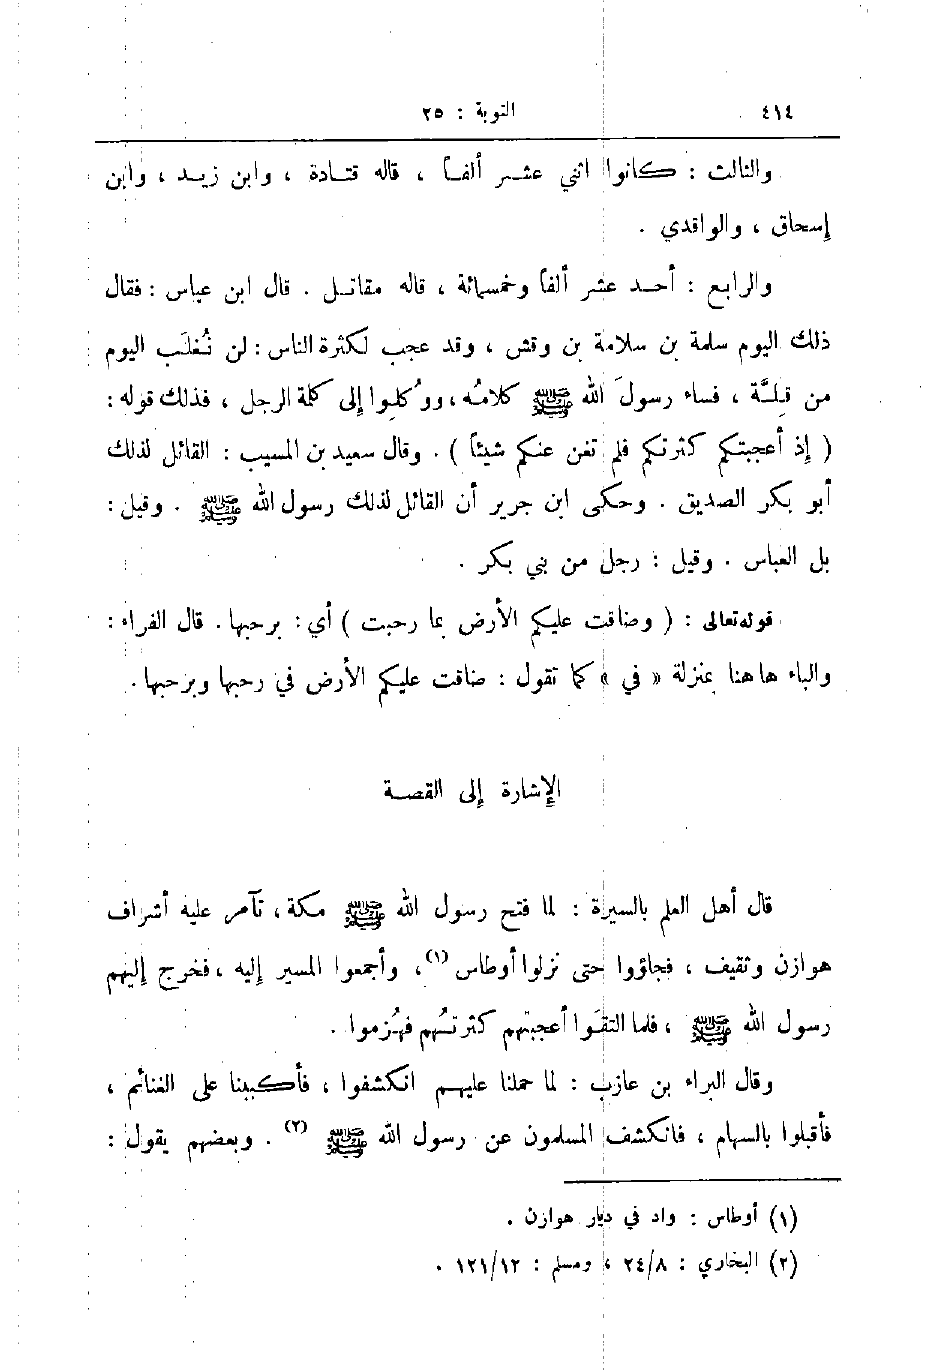 ٤١٤ التوبة : ٢٥
والثالث : كانوا اثني عشر ألفاً ، قاله قتادة ، وابن زيد ، وابن
إسحاق ، والواقدي .
والرابع : أحد عشر ألفاً وخمسمائة ، قاله مقاتل . قال ابن عباس : فقال
ذلك اليوم سلمة بن سلامة بن وقش ، وقد عجب لكثرة الناس : لن نُغلَب اليوم
من قِلَّة ، فساء رسولَ الله ﷺ كلامُه ، ووُكلوا إلى كلمة الرجل ، فذلك قوله :
( إذ أعجبتكم كثرتكم فلم تغن عنكم شيئاً ) . وقال سعيد بن المسيب : القائل لذلك
أبو بكر الصديق . وحكى ابن جرير أن القائل لذلك رسول الله ﷺ . وقيل :
بل العباس . وقيل : رجل من بني بكر .
قوله تعالى : ( وضاقت عليكم الأرض بما رحبت ) أي : برحبها . قال الفراء :
والباء هاهنا بمنزلة « في » كما تقول : ضاقت عليكم الأرض في رحبها وبرحبها .
الإشارة إلى القصة
قال أهل العلم بالسيرة : لما فتح رسول الله ﷺ مكة ، تآمر عليه أشراف
هوازن وثقيف ، فجاؤوا حتى نزلوا أوطاس (١) ، وأجمعوا المسير إليه ، فخرج إليهم
رسول الله ﷺ ، فلما التقَوا أعجبتهم كثرتُهم فهُزموا .
وقال البراء بن عازب : لما حملنا عليهم انكشفوا ، فأكببنا على الغنائم ،
فأقبلوا بالسهام ، فانكشف المسلمون عن رسول الله ﷺ (٢) . وبعضهم يقول :
(١) أوطاس : واد في ديار هوازن .
(٢) البخاري : ٢٤/٨ ، ومسلم : ١٢١/١٢ .